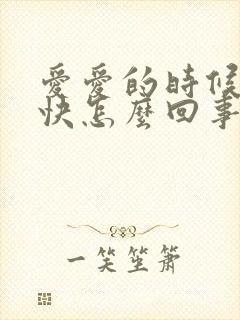 愛愛的時候
快怎麼回事
一笑笙簫